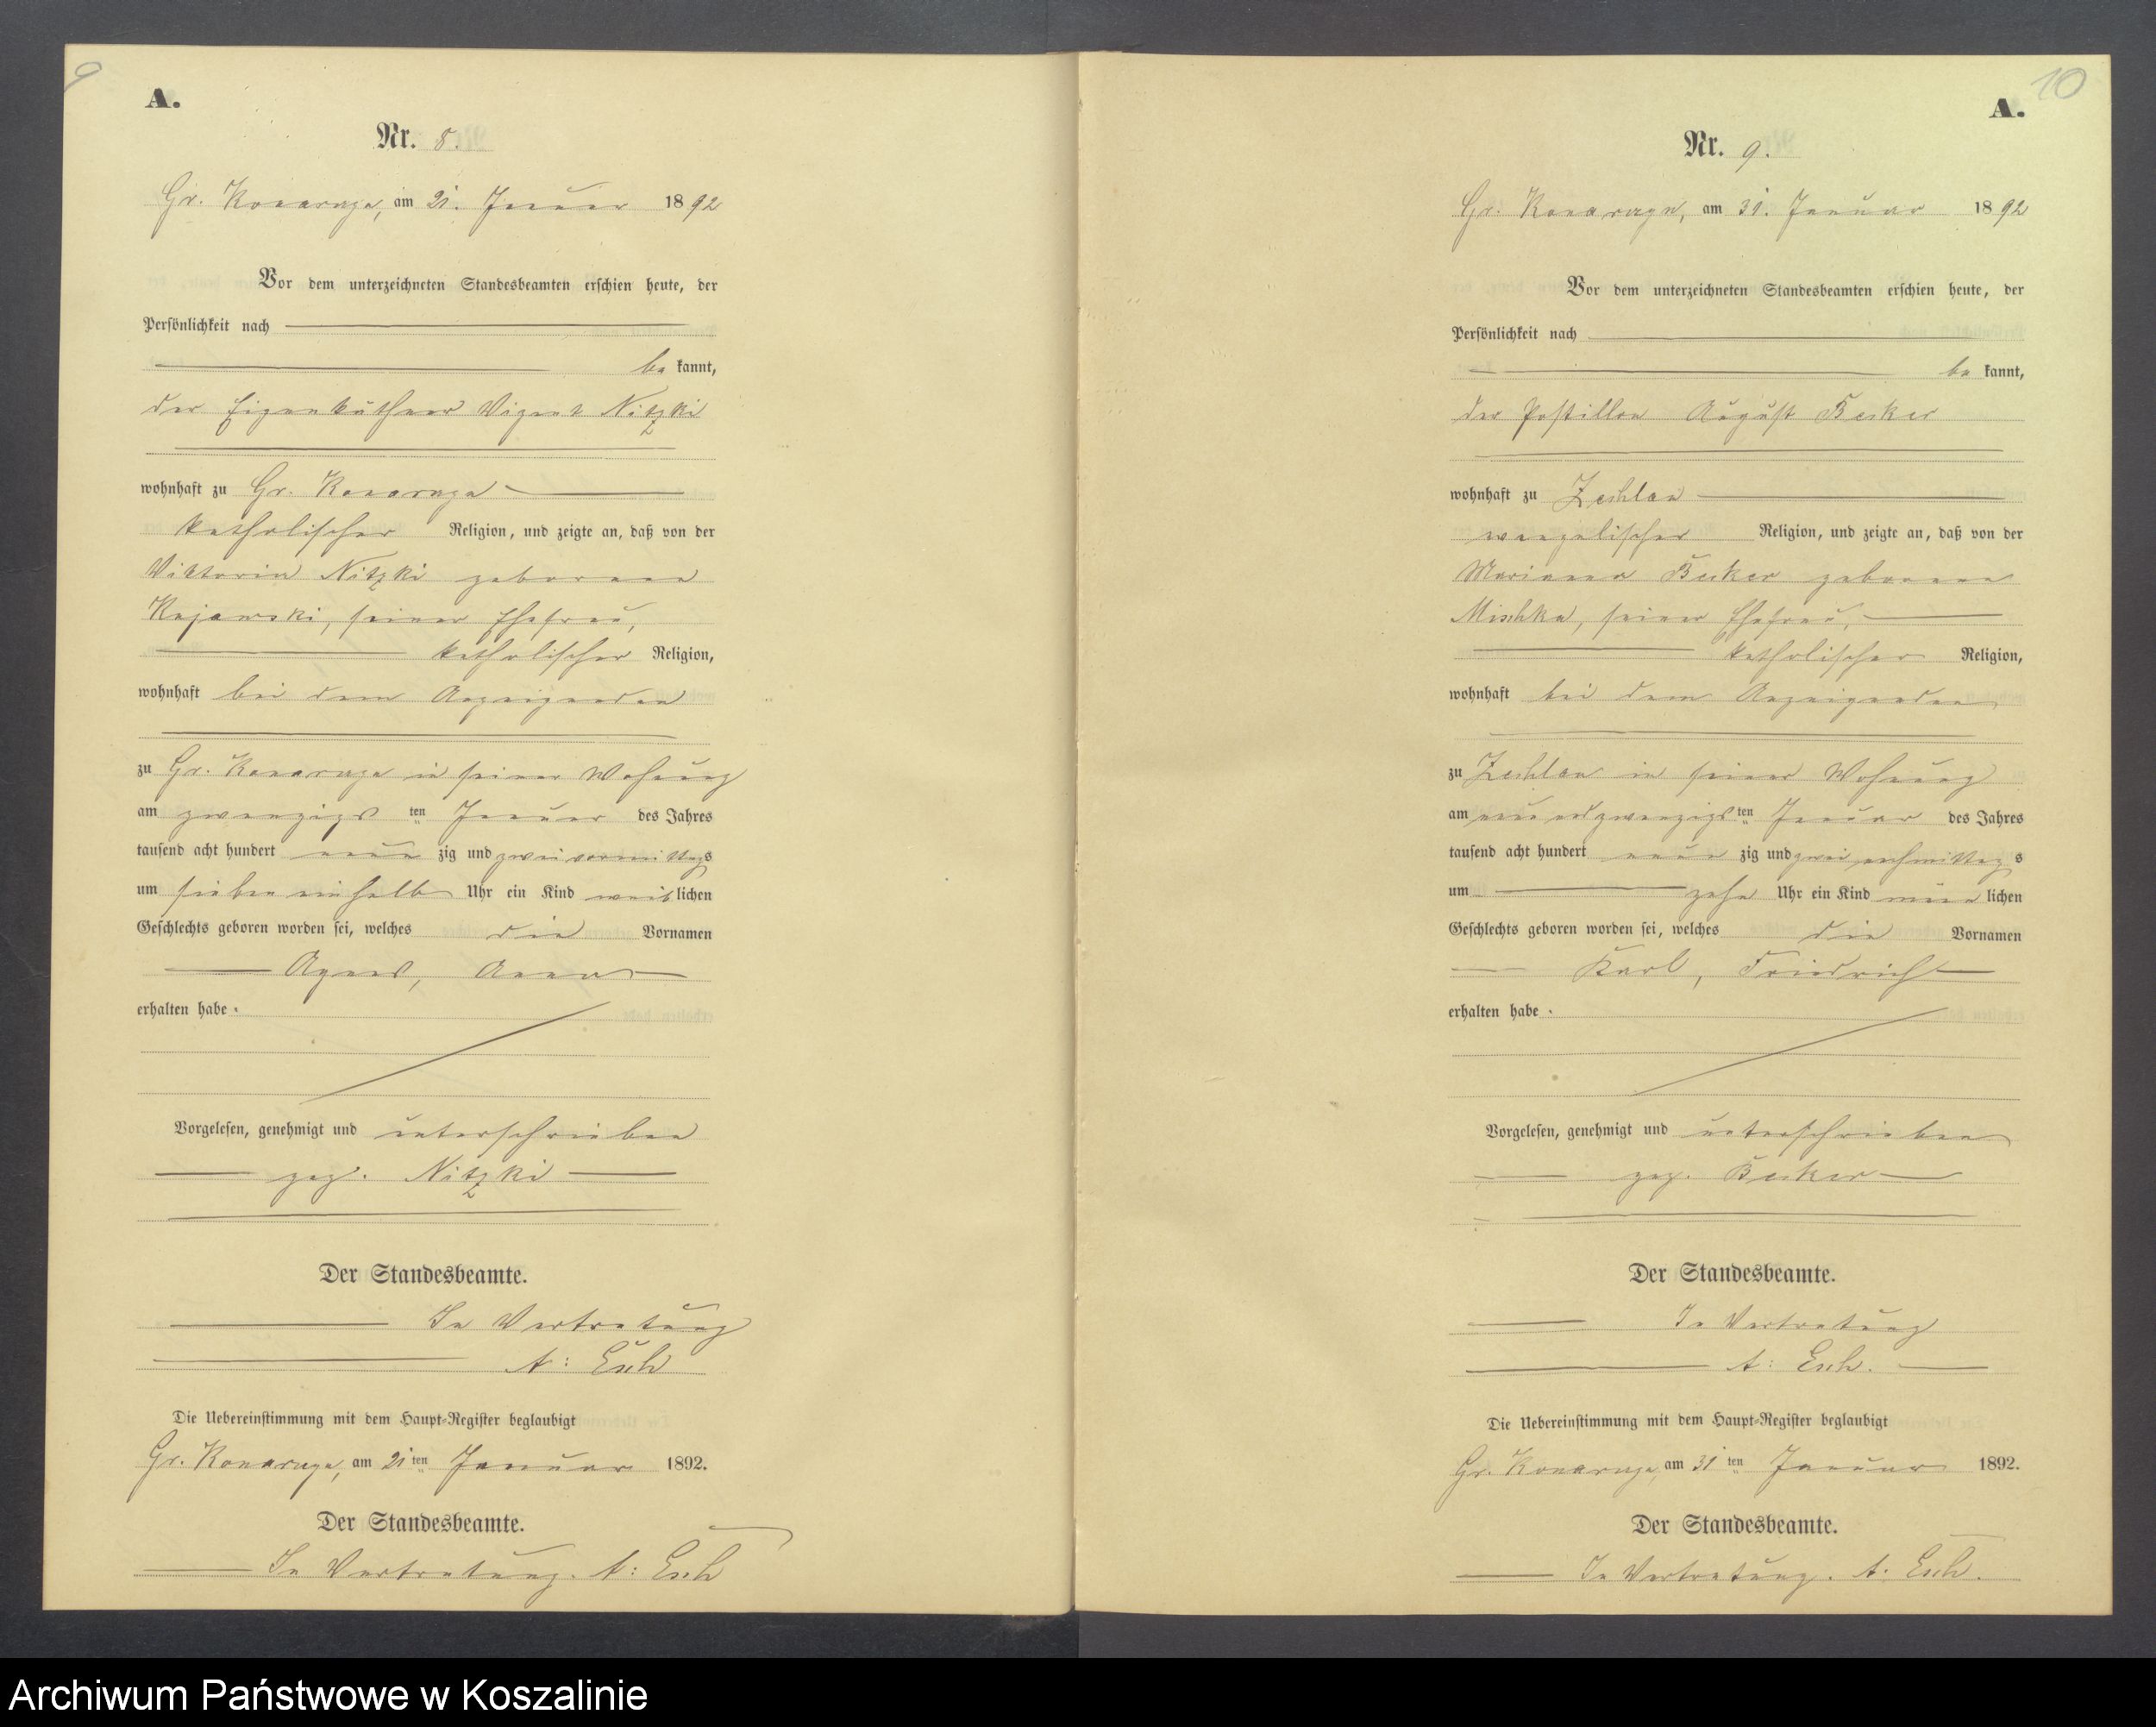 9
A.
Nr. 8.
Gr. Konarzyn, am 21. Januar 1892
Vor dem unterzeichneten Standesbeamten erschien heute, der
Persönlichkeit nach
be kannt,
der Eigenkäthner Nitzki
wohnhaft zu Gr. Konarzyn
katholischer Religion, und zeigte an, daß von der
Viktoria Nitzki geborene
seiner Ehefrau,
katholischer Religion,
wohnhaft bei dem Anzeigenden
zu Gr. Konarzyn in seiner Wohnung
am zwanzigs ten Januar des Jahres
tausend acht hundert neun zig und zwei vormittags
um sieben einhalb Uhr ein Kind weib lichen
Geschlechts geboren worden sei, welches die Vornamen
Agnes, Anna
erhalten habe.
Vorgelesen, genehmigt und unterschrieben
gez. Nitzki
Der Standesbeamte.
In Vertretung
A: Esch
Die Uebereinstimmung mit dem Haupt-Register beglaubigt
Gr. Konarzyn, am 21ten Januar 1892.
Der Standesbeamte.
In Vertretung. A: Esch
10
A.
Nr. 9.
Gr. Konarzyn, am 31. Januar 1892
Vor dem unterzeichneten Standesbeamten erschien heute, der
Persönlichkeit nach
be kannt,
der Postillon August Becker
wohnhaft zu Zechlau
evangelischer Religion, und zeigte an, daß von der
Marianna Becker geborene
Mischke, seiner Ehefrau,
katholischer Religion,
wohnhaft bei dem Anzeigenden
zu Zechlau in seiner Wohnung
am neunundzwanzigs ten Januar des Jahres
tausend acht hundert neun zig und zwei nachmittag s
um zehn Uhr ein Kind männ lichen
Geschlechts geboren worden sei, welches die Vornamen
Karl, Friedrich
erhalten habe.
Vorgelesen, genehmigt und unterschrieben
gez. Becker
Der Standesbeamte.
In Vertretung
A: Esch.
Die Uebereinstimmung mit dem Haupt-Register beglaubigt
Gr. Konarzyn, am 31ten Januar 1892.
Der Standesbeamte.
In Vertretung. A. Esch.
Archiwum Państwowe w Koszalinie